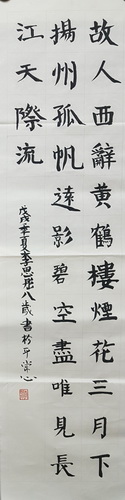 故人西辭黃鶴樓煙花三月下
揚州孤帆遠影碧空盡唯見長
江天際流
戊戌年夏李思彤八歲書於平常心